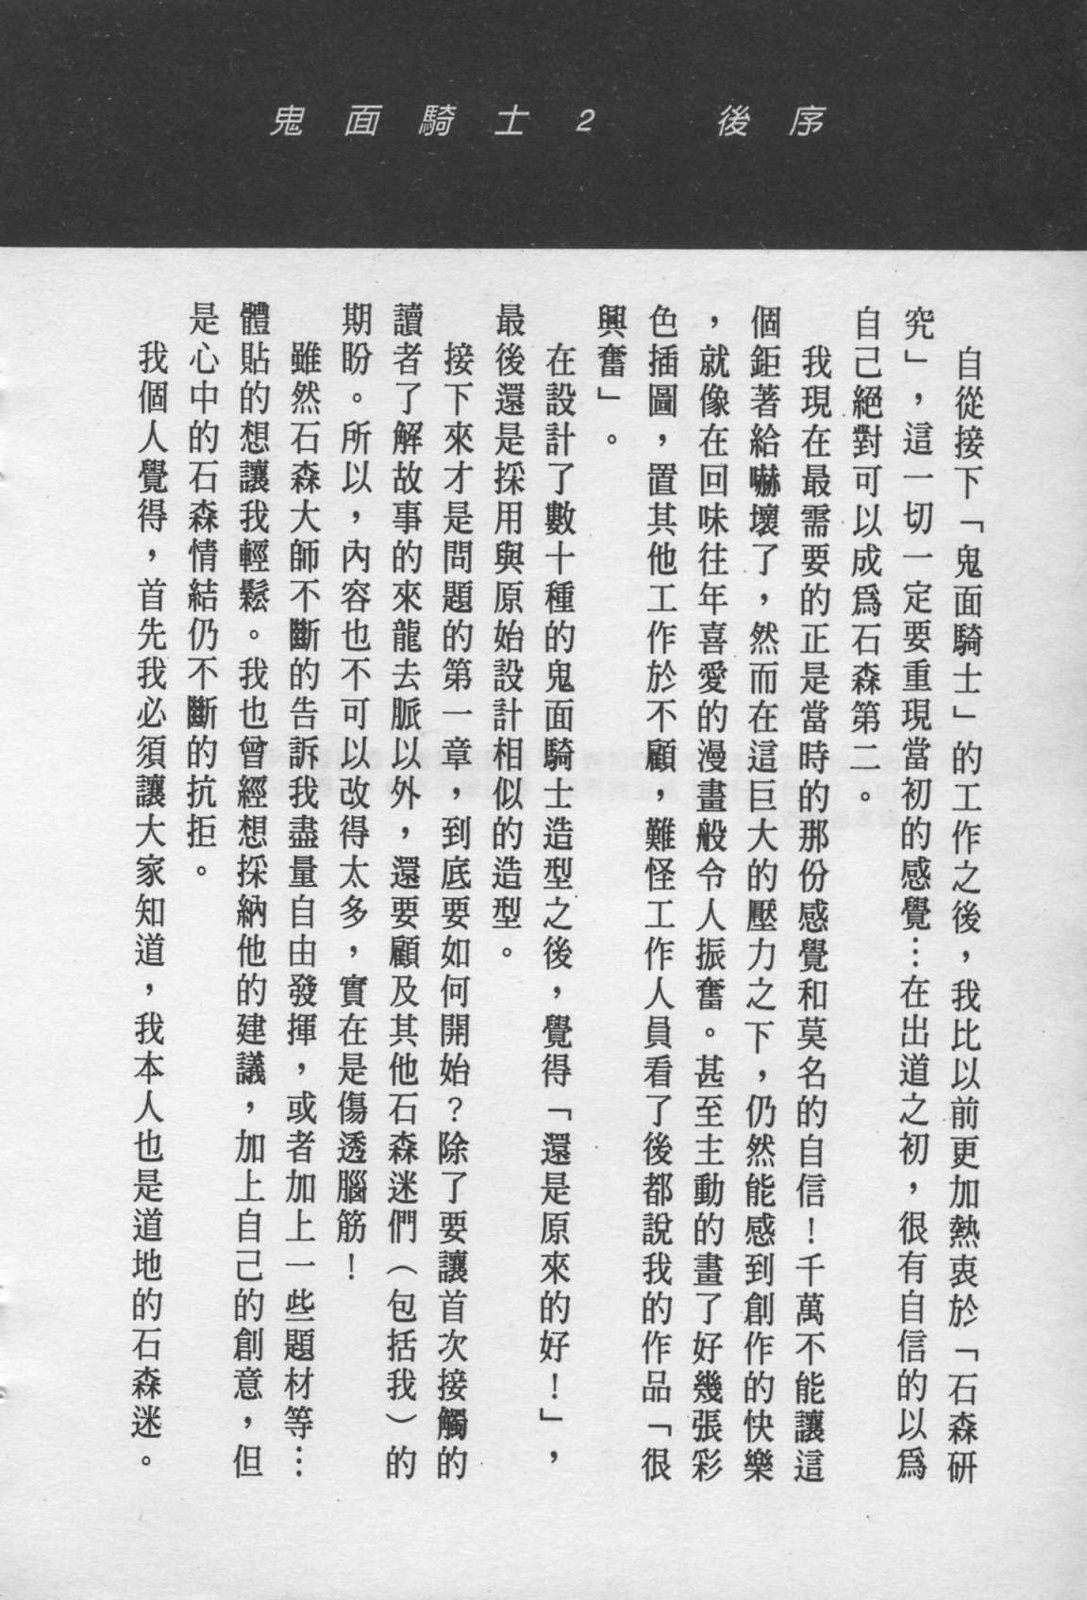 鬼面騎士2 後序
自從接下「鬼面騎士」的工作之後，我比以前更加熱衷於「石森研
究」，這一切一定要重現當初的感覺…在出道之初，很有自信的以為
自己絕對可以成為石森第二。
我現在最需要的正是當時的那份感覺和莫名的自信！千萬不能讓這
個鉅著給嚇壞了，然而在這巨大的壓力之下，仍然能感到創作的快樂
，就像在回味往年喜愛的漫畫般令人振奮。甚至主動的畫了好幾張彩
色插圖，置其他工作於不顧，難怪工作人員看了後都說我的作品「很
興奮」。
在設計了數十種的鬼面騎士造型之後，覺得「還是原來的好！」，
最後還是採用與原始設計相似的造型。
接下來才是問題的第一章，到底要如何開始？除了要讓首次接觸的
讀者了解故事的來龍去脈以外，還要顧及其他石森迷們（包括我）的
期盼。所以，內容也不可以改得太多，實在是傷透腦筋！
雖然石森大師不斷的告訴我盡量自由發揮，或者加上一些題材等…
體貼的想讓我輕鬆。我也曾經想採納他的建議，加上自己的創意，但
是心中的石森情結仍不斷的抗拒。
我個人覺得，首先我必須讓大家知道，我本人也是道地的石森迷。